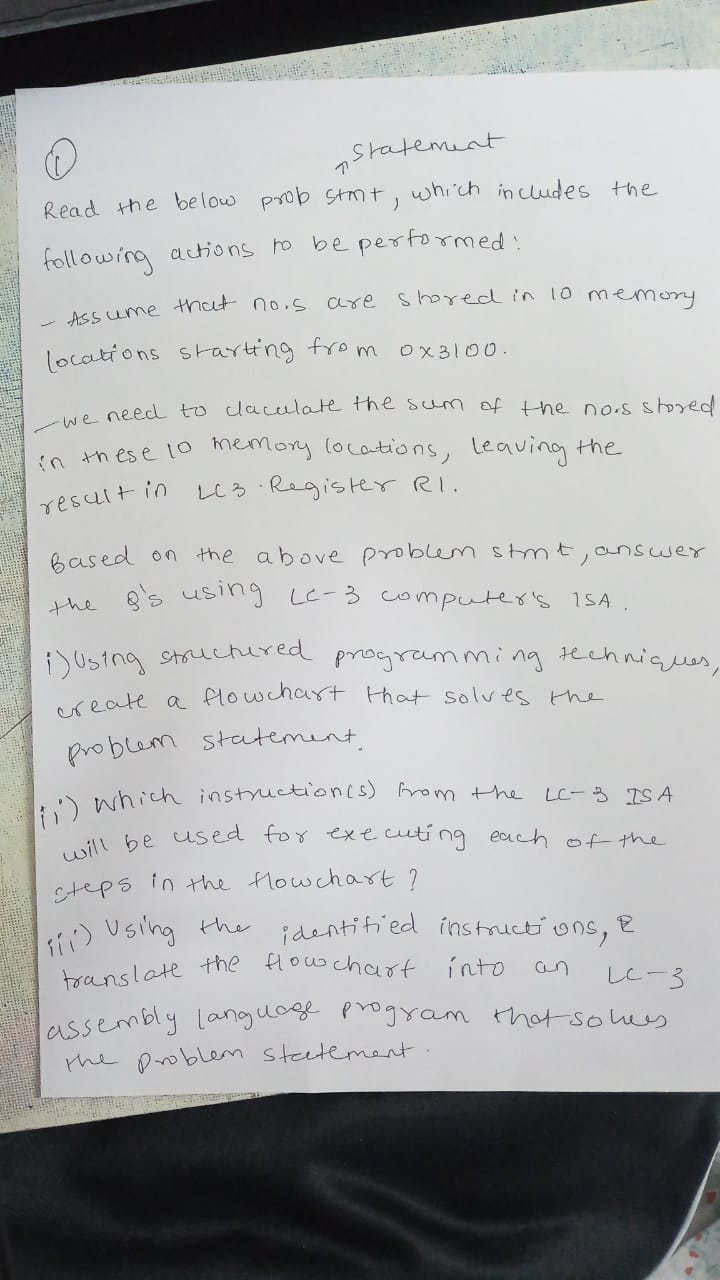 ①
↑ Statement
Read the below prob stmt, which includes the
following actions to be performed:
- Assume that no.s are stored in 10 memory
locations starting from 0x3100.
- we need to claculate the sum of the no.s stored
in these 10 memory locations, leaving the
result in LC3 Register R1.
Based on the above problem stmt, answer
the Q's using LC-3 computer's ISA.
i) Using structured programming techniques,
create a flowchart that solves the
problem statement.
ii) which instruction(s) from the LC-3 ISA
will be used for executing each of the
steps in the flowchart?
iii) Using the identified instructions,
translate the flowchart into an LC-3
assembly language program that solves
the problem steetement.